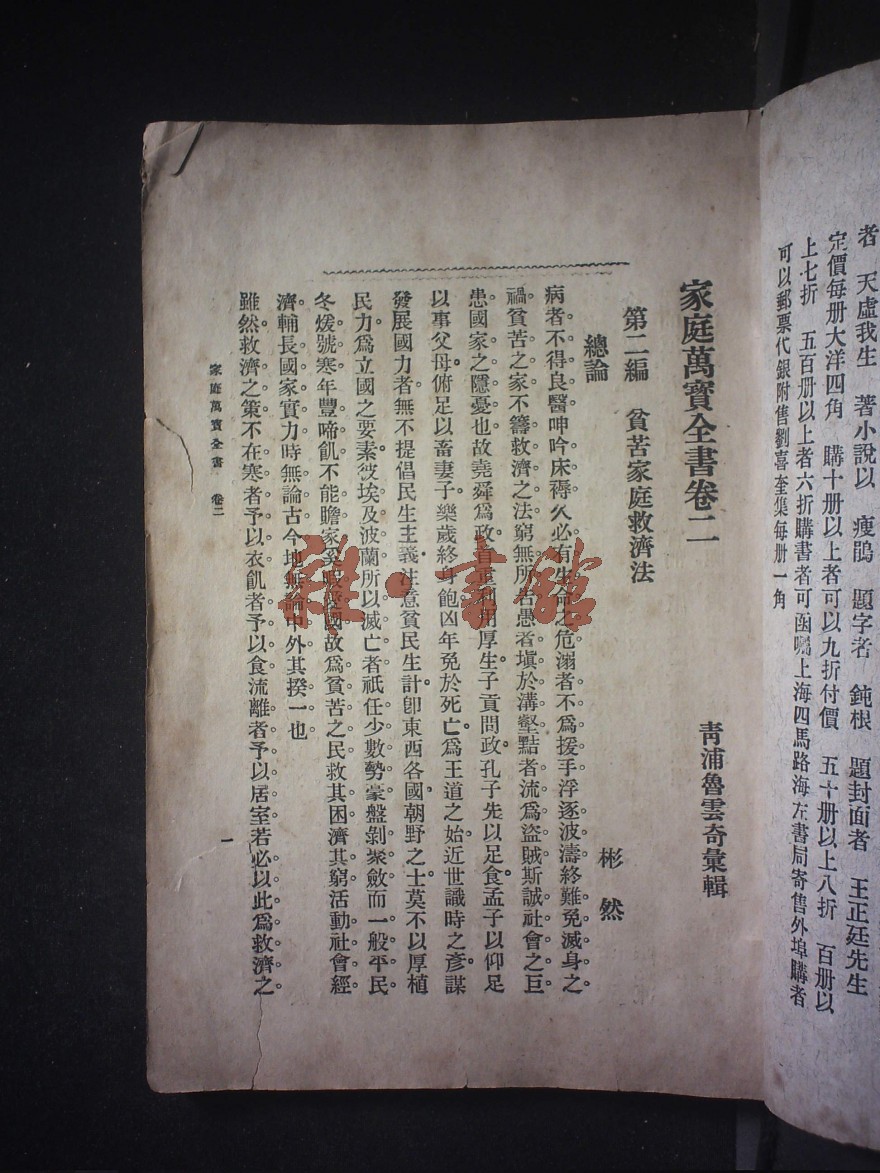 者　天虛我生　著小說以　瘦鵑　題字者　鈍根　題封面者　王正廷先生
定價每册大洋四角　購十册以上者可以九折付價　五十册以上八折　百册以
上七折　五百册以上者六折購書者可函囑上海四馬路海左書局寄售外埠購者
可以郵票代銀附售劉喜奎集每册一角
家庭萬寶全書卷二
青浦魯雲奇彙輯
第二編　貧苦家庭救濟法
總論
彬然
病者不得良醫呻吟床褥久必有生命之危溺者不爲援手浮逐波濤終難免滅身之
禍貧苦之家不籌救濟之法窮無所告愚者塡於溝壑黠者流爲盜賊斯誠社會之巨
患國家之隱憂也故堯舜爲政首重利用厚生子貢問政孔子先以足食孟子以仰足
以事父母俯足以畜妻子樂歲終身飽凶年免於死亡爲王道之始近世識時之彥謀
發展國力者無不提倡民生主義注意貧民生計卽東西各國朝野之士莫不以厚植
民力爲立國之要素彼埃及波蘭所以滅亡者祇任少數勢豪盤剝聚斂而一般平民
冬煖號寒年豐啼飢不能贍家奚暇愛國故爲貧苦之民救其困濟其窮活動社會經
濟輔長國家實力時無論古今地無論中外其揆一也
雖然救濟之策不在寒者予以衣飢者予以食流離者予以居室若必以此爲救濟之
家庭萬寶全書　卷二
一
雅·書館